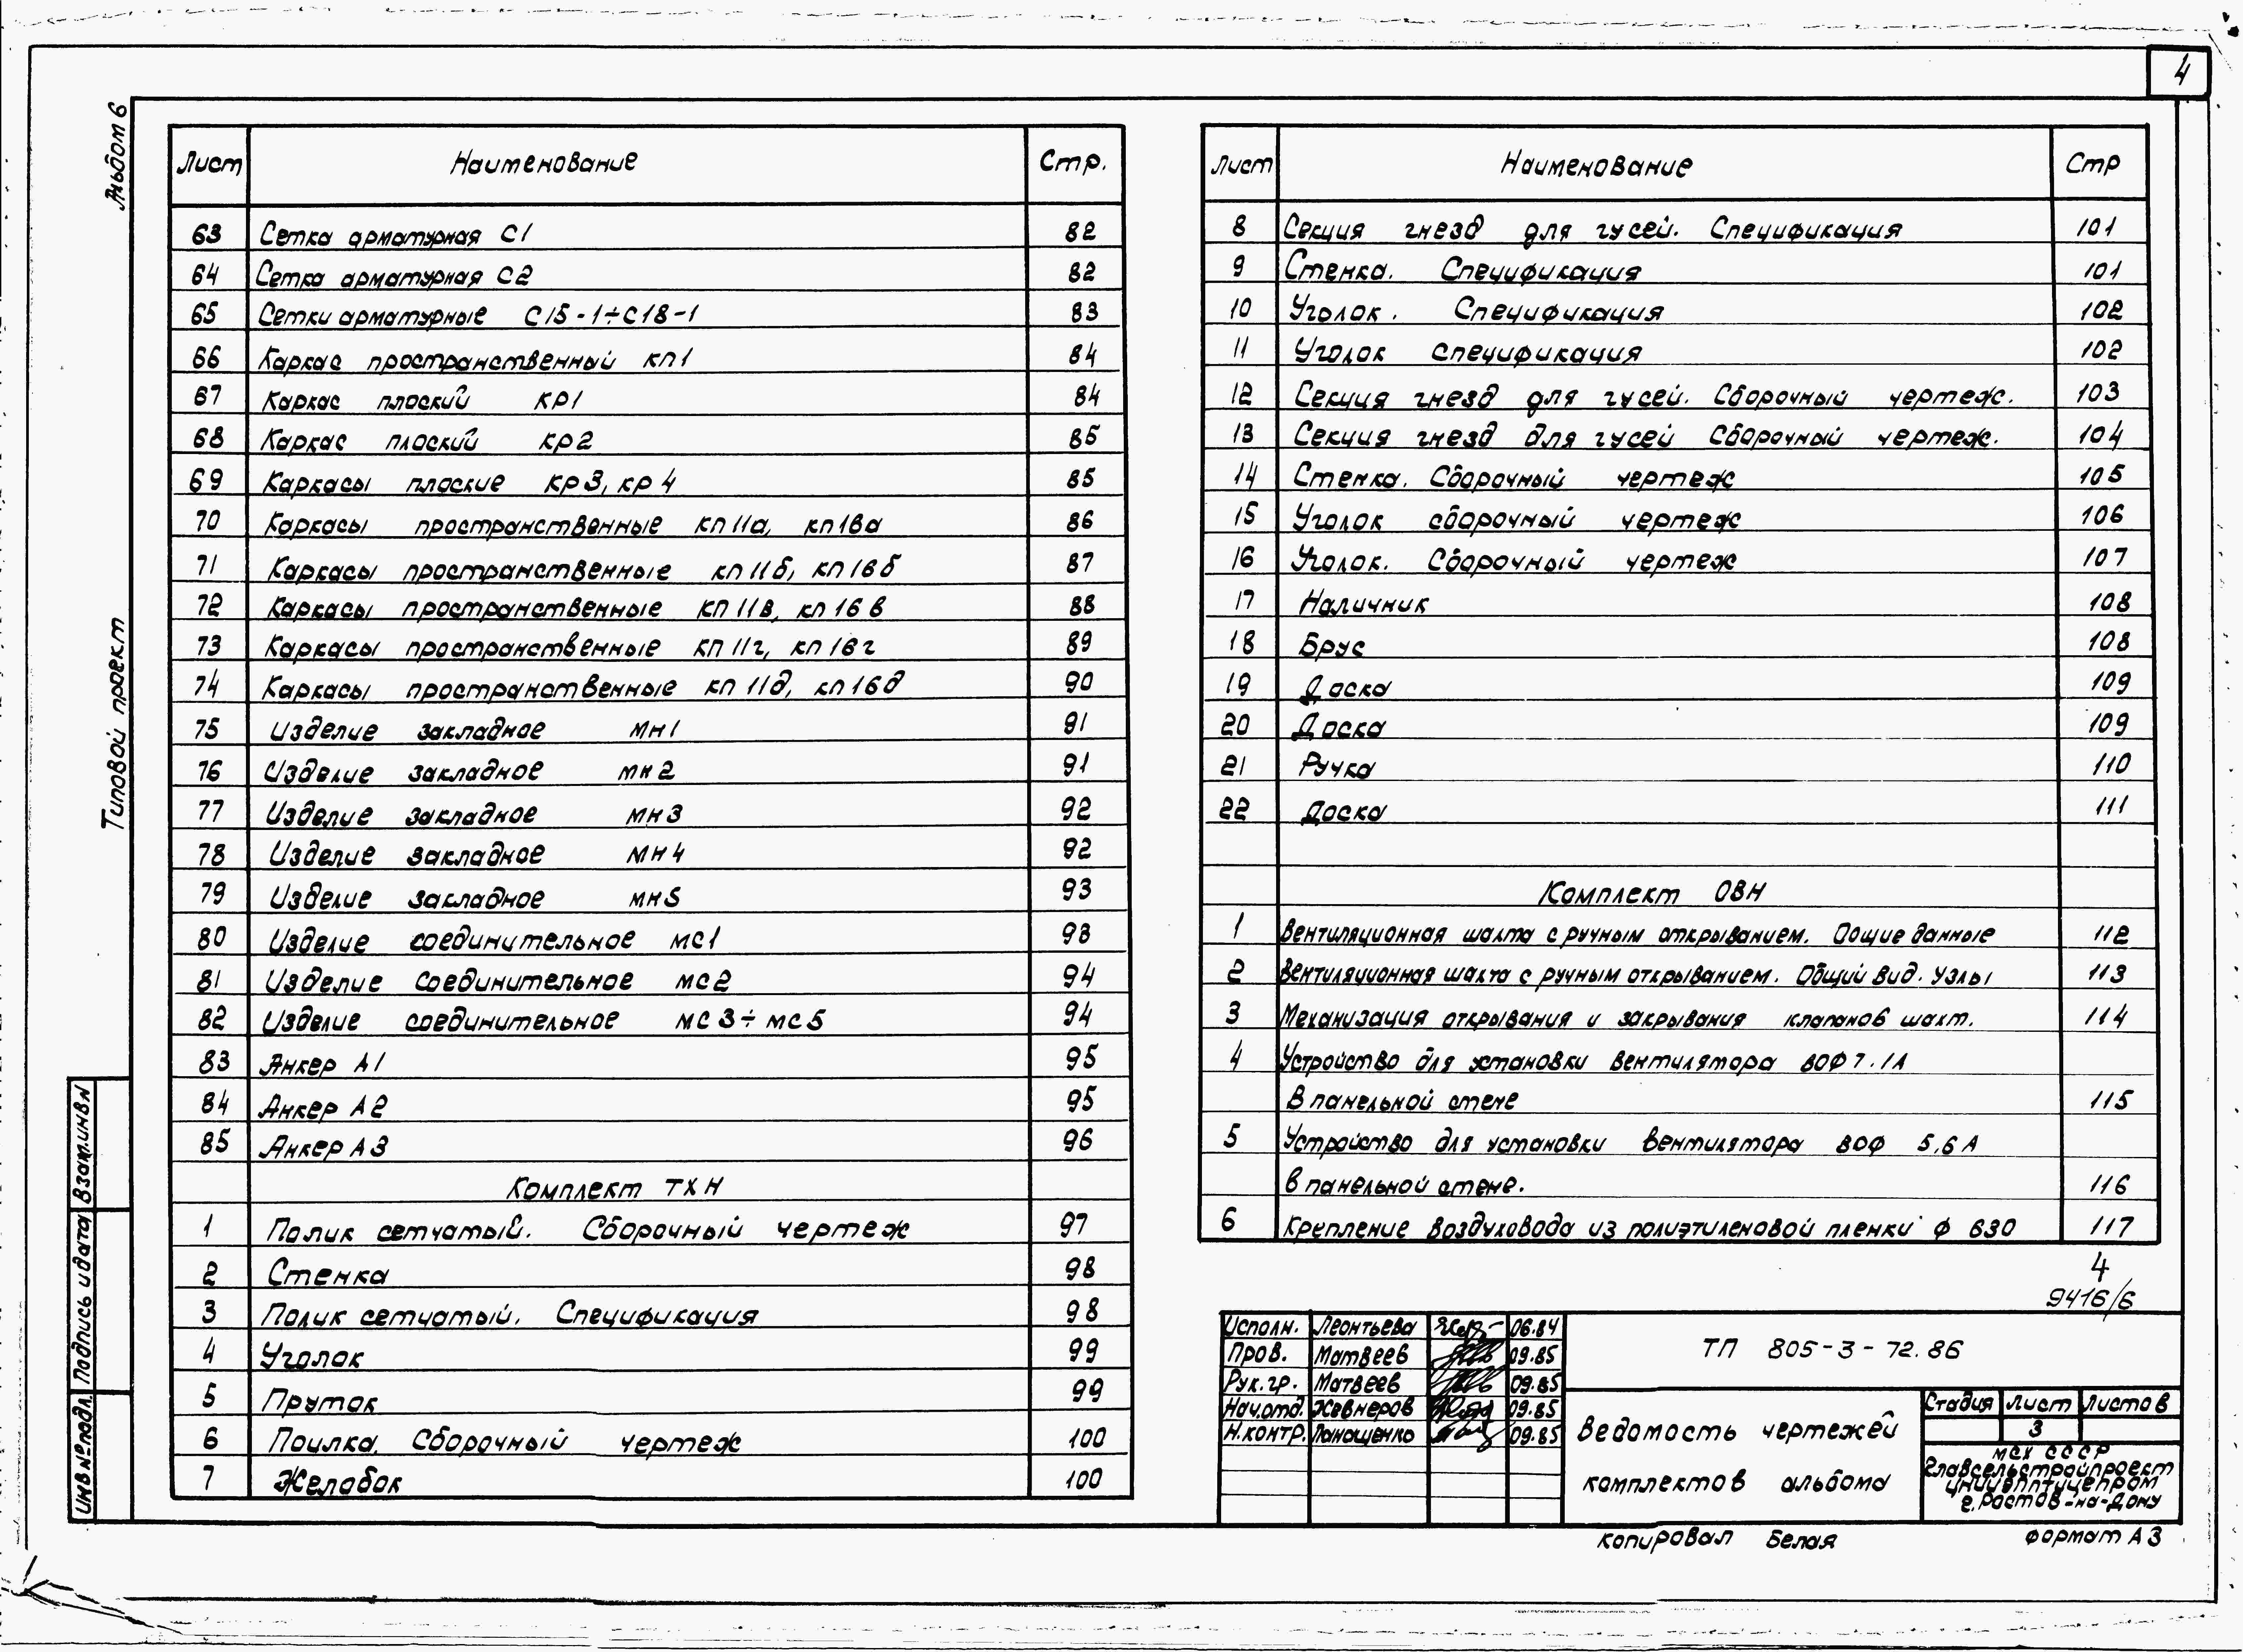 4
Альбом 6
Типовой проект
Лист Наименование Стр.
63 Сетка арматурная С1 82
64 Сетка арматурная С2 82
65 Сетки арматурные С15-1÷С18-1 83
66 Каркас пространственный кп1 84
67 Каркас плоский КР1 84
68 Каркас плоский кр2 85
69 Каркасы плоские кр3, кр4 85
70 Каркасы пространственные кп11а, кп16а 86
71 Каркасы пространственные кп11б, кп16б 87
72 Каркасы пространственные кп11в, кп16в 88
73 Каркасы пространственные кп11г, кп16г 89
74 Каркасы пространственные кп11д, кп16д 90
75 Изделие закладное мн1 91
76 Изделие закладное мн2 91
77 Изделие закладное мн3 92
78 Изделие закладное мн4 92
79 Изделие закладное мн5 93
80 Изделие соединительное мс1 93
81 Изделие соединительное мс2 94
82 Изделие соединительное мс3÷мс5 94
83 Анкер А1 95
84 Анкер А2 95
85 Анкер А3 96
Комплект ТХН
1 Полик сетчатый. Сборочный чертеж 97
2 Стенка 98
3 Полик сетчатый. Спецификация 98
4 Уголок 99
5 Пруток 99
6 Поилка. Сборочный чертеж 100
7 Желобок 100
Лист Наименование Стр
8 Секция гнезд для гусей. Спецификация 101
9 Стенка. Спецификация 101
10 Уголок. Спецификация 102
11 Уголок спецификация 102
12 Секция гнезд для гусей. Сборочный чертеж. 103
13 Секция гнезд для гусей Сборочный чертеж. 104
14 Стенка. Сборочный чертеж 105
15 Уголок сборочный чертеж 106
16 Уголок. Сборочный чертеж 107
17 Наличник 108
18 Брус 108
19 Доска 109
20 Доска 109
21 Ручка 110
22 Доска 111
Комплект ОВН
1 Вентиляционная шахта с ручным открыванием. Общие данные 112
2 Вентиляционная шахта с ручным открыванием. Общий вид. Узлы 113
3 Механизация открывания и закрывания клапанов шахт. 114
4 Устройство для установки вентилятора ВОФ 7.1А
в панельной стене 115
5 Устройство для установки вентилятора ВОФ 5,6А
в панельной стене. 116
6 Крепление воздуховода из полиэтиленовой пленки ф 630 117
4
9416/6
Исполн. Леонтьева 06.84
Пров. Матвеев 09.85
Рук.гр. Матвеев 09.85
Нач.отд. Жевнеров 09.85
Н.контр. Панащенко 09.85
ТП 805-3-72.86
Ведомость чертежей
комплектов альбома
Стадия Лист Листов
3
МСХ СССР
Главсельстройпроект
ЦНИИЭПптицепром
г. Ростов-на-Дону
Копировал Белая Формат А3
Взам.инв№
Подпись и дата
Инв№подл.